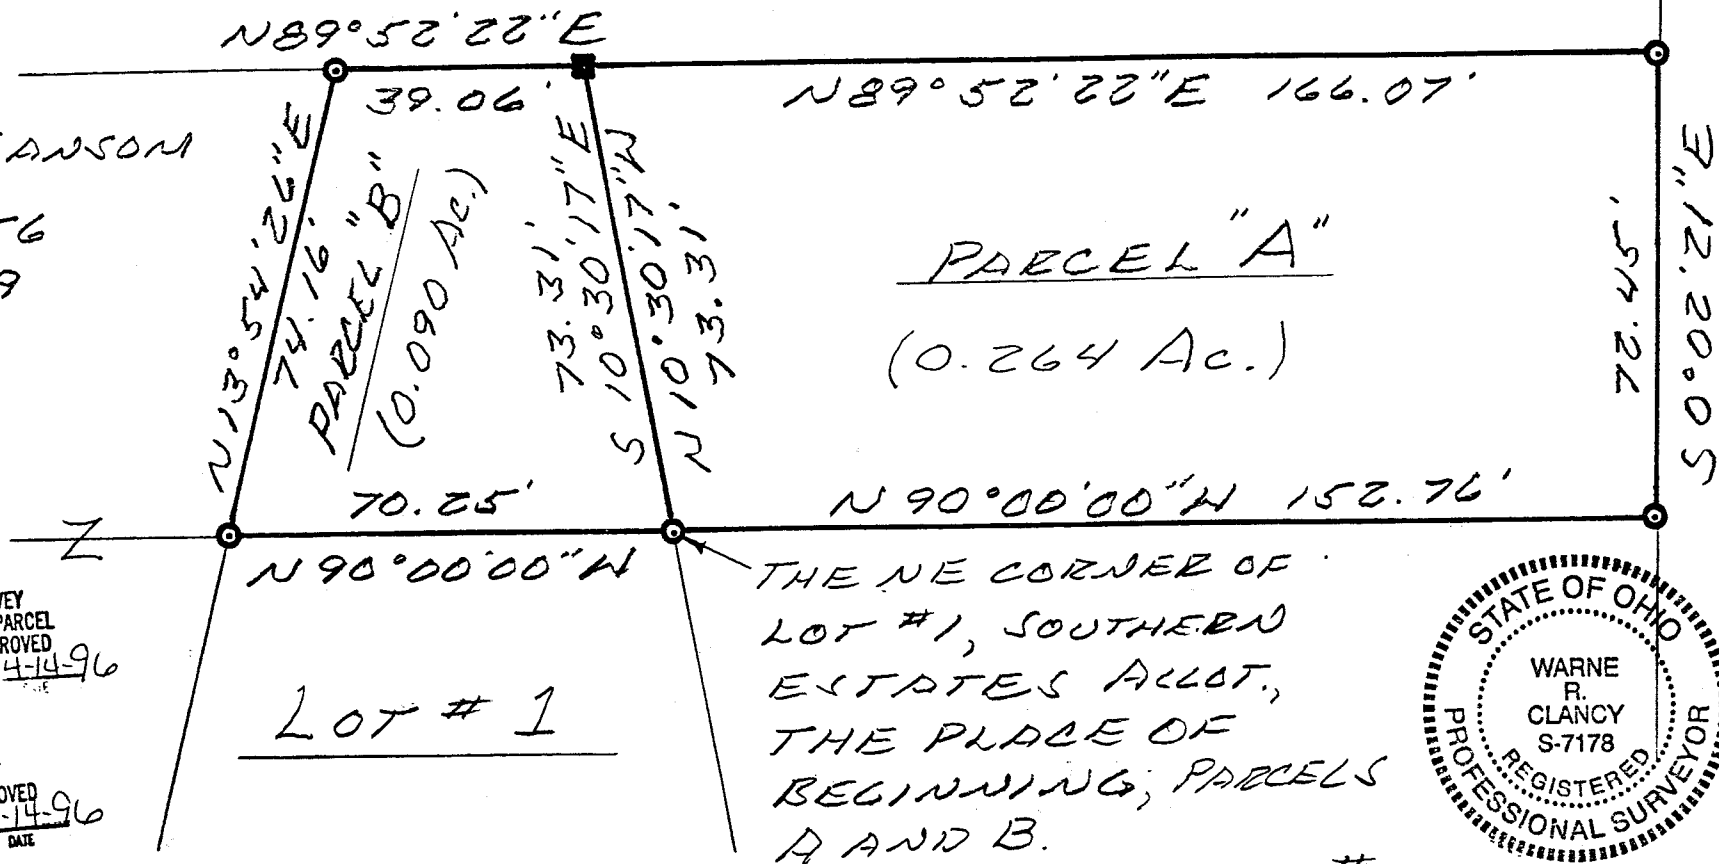 N89°52'22"E
39.06'
N89°52'22"E 166.07'
ANSOM
N13°54'26"E
74.16'
PARCEL "B"
(0.090 Ac.)
73.31'
S 10°30'17"E
N 10°30'17"W
73.31'
PARCEL "A"
(0.264 Ac.)
72.45'
S 0°02'21"E
70.25'
N 90°00'00"W 152.76'
N 90°00'00"W
THE NE CORNER OF
LOT #1, SOUTHERN
ESTATES ALLOT.,
THE PLACE OF
BEGINNING; PARCELS
A AND B.
LOT # 1
PARCEL
4-14-96
DATE
STATE OF OHIO
WARNE
R.
CLANCY
S-7178
REGISTERED
PROFESSIONAL SURVEYOR
#